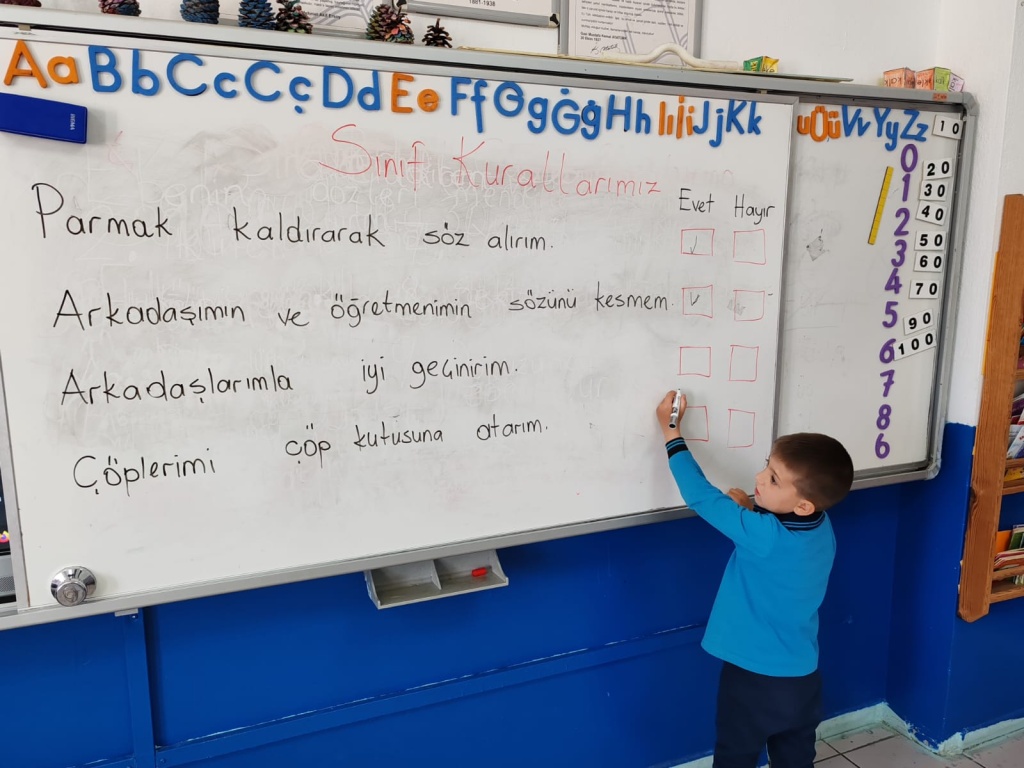 1881-1938
Aa Bb Cc Çç Dd Ee Ff Gg Ğğ Hh Iı İi Jj Kk
uÜü Vv Yy Zz
Sınıf Kurallarımız
Evet Hayır
Parmak kaldırarak söz alırım.
Arkadaşımın ve öğretmenimin sözünü kesmem.
Arkadaşlarımla iyi geçinirim.
Çöplerimi çöp kutusuna atarım.
0
1
2
3
4
5
6
7
8
6
10
20
30
40
50
60
70
90
100